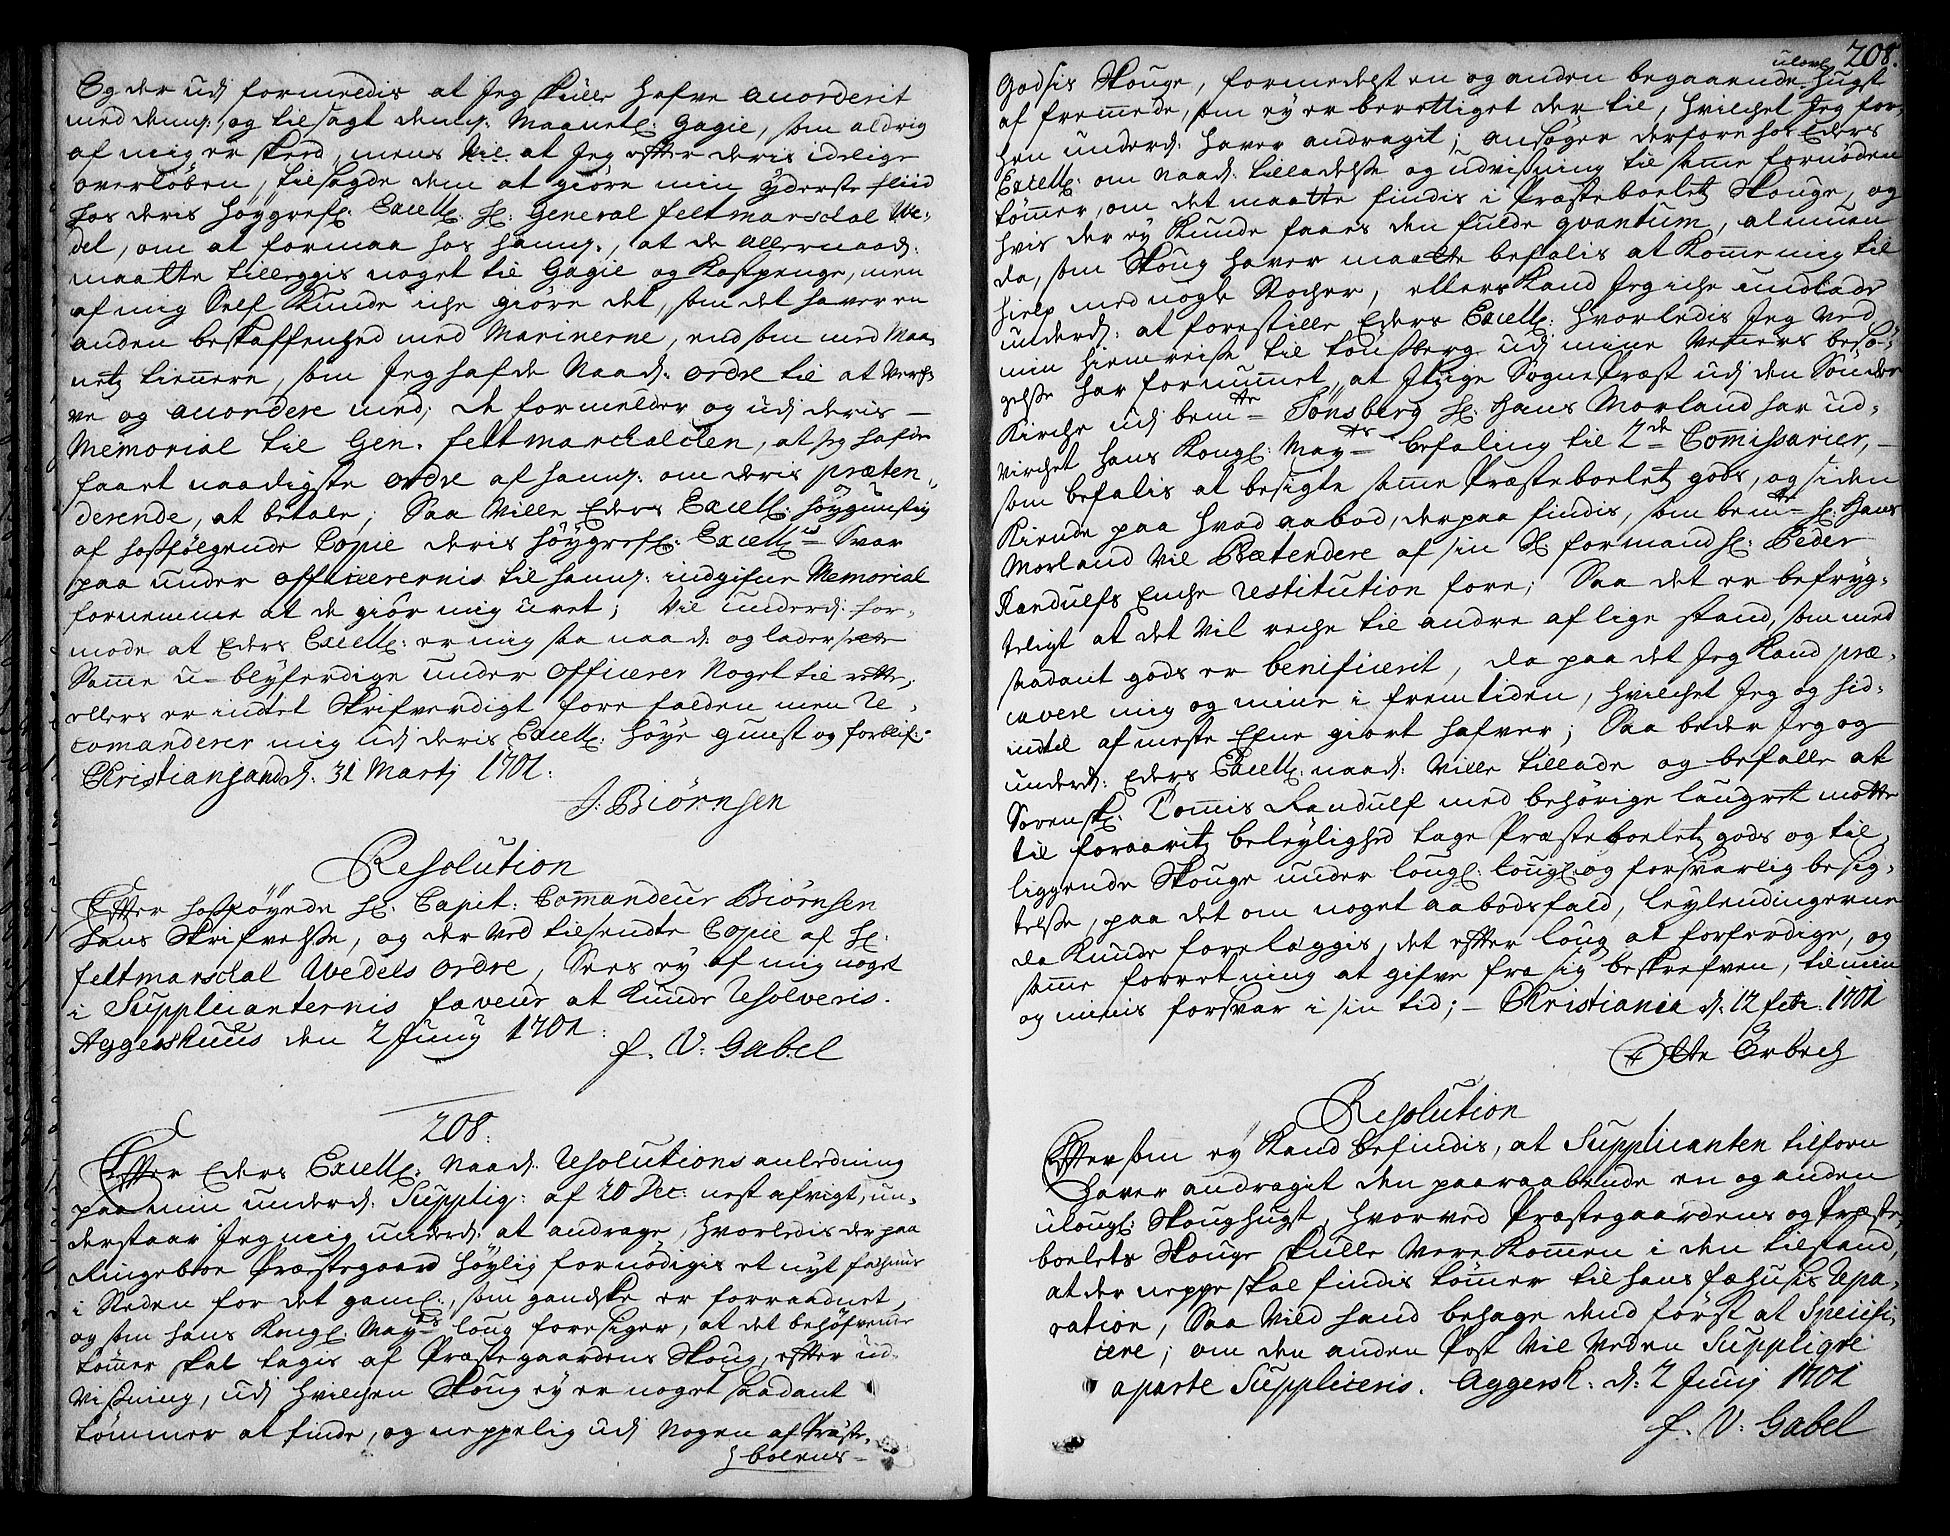 Og der udj formeldis at Jeg skulle hafve anorderit
med dennɉ: og tilsagt dennɉ: Maanetl: Gagie, som aldrig
af mig er skeed, mens vil at Jeg efter deris idelige
overløben, tilsagde dem at giøre min yderste fliid
hos deris Høygrefl: Excell: Hr: General feltmarschal We-
del, om at formaa hos hannɉ:, at de allernaad:
maatte tilleggis noget til Gagie og Kostpenge, men
af mig Self Kunde iche giøre det, som det haver en
anden beskaffenhed med Marinerne, end som med Maa-
netz tiennere, som Jeg hafde Naad: ordre til at Verf-
ve og anordere med; De formelder og udj deris
Memorial til Gen: feltmarchalchen, at jeg hafde
faaet naadigste ordre af hannɉ: om deris præten-
derende, at betale; Saa Ville Eders Excell: høygunstig
af hosfølgende Copie deris Høygrefl: Excell: Svar
paa under officerernis til hannɉ: indgifne Memorial
fornemme at de giør mig uret; Vil underd: for-
mode at Eders Excell: er mig saa naad: og lader sette
Samme u-blyferdige under Officerer Noget til rette,
ellers er indtet Skrifverdigt fore falden men Re-
comanderer mig udj deris Excell: høye gunst og forblif:
Christiansand d: 31 Martj 1701:
J: Biørnsen
Resolution
Efter hosføyede Hr: Capit: Comandeur Biørnsen
hans Skrifvelse, og der ved tilsendte Copie af Hr:
feltmarschal Wedels ordre, Sees ey af mig noget
i Supplicanternis faveur at Kunde Resolveris.
Aggershuus den 2 Junij 1701:
F. V: Gabel
208.
Efter Eders Excell: Naad: Resolutions anledning
paa min underd: Supplig: af 20 Dec: nest afvigt, un-
derstaar Jeg mig underd: at andrage, hvorledis der paa
Ringeboe Præstegaard høylig fornødigis et nyt fæhuus
i Steden for det gaml:, som gandske er forraadnet,
og som hans Kongl: Mayts loug foresiger, at det behøfvende
tømmer skal tagis af Præstegaardens Skoug, efter ud-
visning, udj hvilchen Skoug ey er noget saadant
tømmer at finde, og neppelig udj Nogen af Præste-
boelens
208.
ulovl:
Godsis Skouge, formedelst en og anden begaaende hugst
af fremmede, som ey er berettiget der til, hvilchet Jeg for-
hen underd: haver andragit; ansøger derfore hos Eders
Excell: om Naad: tilladelse og udvisning til samme fornøden
tømmer, om det maatte findis i Præsteboeletz Skouge, og
hvis der ey Kunde faaes den fulde qvantum, almuen
da, som Skoug haver maatte befalis at Komme mig til
hielp med nogle Stocher, ellers Kand Jeg iche undlade
underd: at forestille Eders Excell: hvorledis Jeg ved
min hiemreise til Tønsberg udj mine Venners besø-
gelse har fornummet, at Itzige Sognepræst udj den Søndre
Kirche udj bemte Tønsberg Hr: Hans Morland har ud-
virchet hans Kongl: Mayts befaling til 2de Commissarier,
som befalis at besigte samme Præsteboeletz gods, og siden
Kiende paa hvad aabod, derpaa findis, som bemte Hr: Hans
Morland Vil Prætendere af sin Sl: formand Hr: Peder
Randulfs Enche restitution fore; Saa det er befryg-
teligt at det Vil reche til andre af lige stand, som med
saadant gods er benificerit, da paa det Jeg Kand præ-
cavere mig og mine i fremtiden, hvilchet Jeg og hid-
indtil af meste Efne giort hafver; Saa beder Jeg og
underd: Eders Excell: naad: Ville tillade og befalle at
Sorensk: Tønnis Randulf med behørige laugret motte
til foraaritz beleylighed tage Præsteboeletz gods og til-
liggende Skouge under lougl: lougl: og forsvarlig besig-
telse, paa det om noget aabodsfald, leylendingerne
da Kunde foreleggis, det efter loug at forferdige, og
samme forretning at gifve fra sig beskrefven, til min
og minis forsvar i sin tid; – Christiania d: 12 febr. 1701
Otte Orbech
Resolution
Eftersom ey Kand befindis, at Supplicanten tilforn
haver andragit den paaraabende en og anden
ulougl: Skoughugst, hvorved Præstegaardens og Præste-
boelets Skouge skulle Vere Kommen i den tilstand,
at der neppe skal findis tømmer til hans fæhusis Repa-
ration, Saa Vild hand behage dend først at Specifi-
cere; om den anden Post Vil Veden Suppliqve
aparte Suppliceris. Aggersh: d: 2 Junij 1701
F. V: Gabel